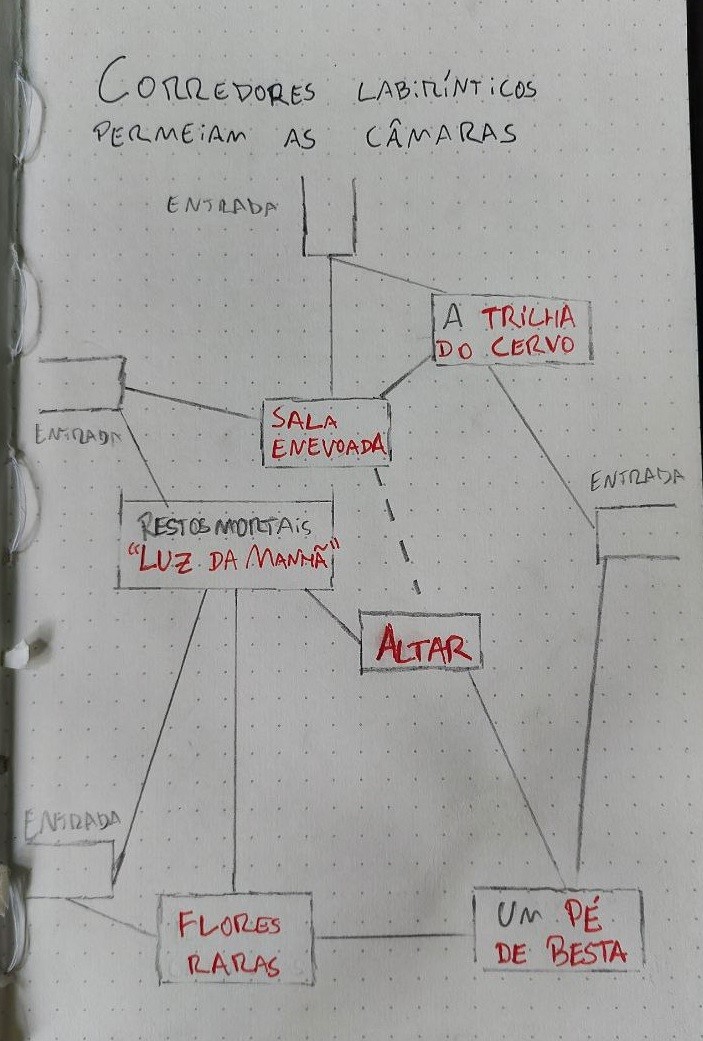 CORREDORES LABIRÍNTICOS
PERMEIAM AS CÂMARAS
ENTRADA
A TRILHA
DO CERVO
SALA
ENEVOADA
ENTRADA
ENTRADA
RESTOS MORTAIS
"LUZ DA MANHÃ"
ALTAR
ENTRADA
FLORES
RARAS
UM PÉ
DE BESTA